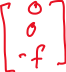 0
0
-f